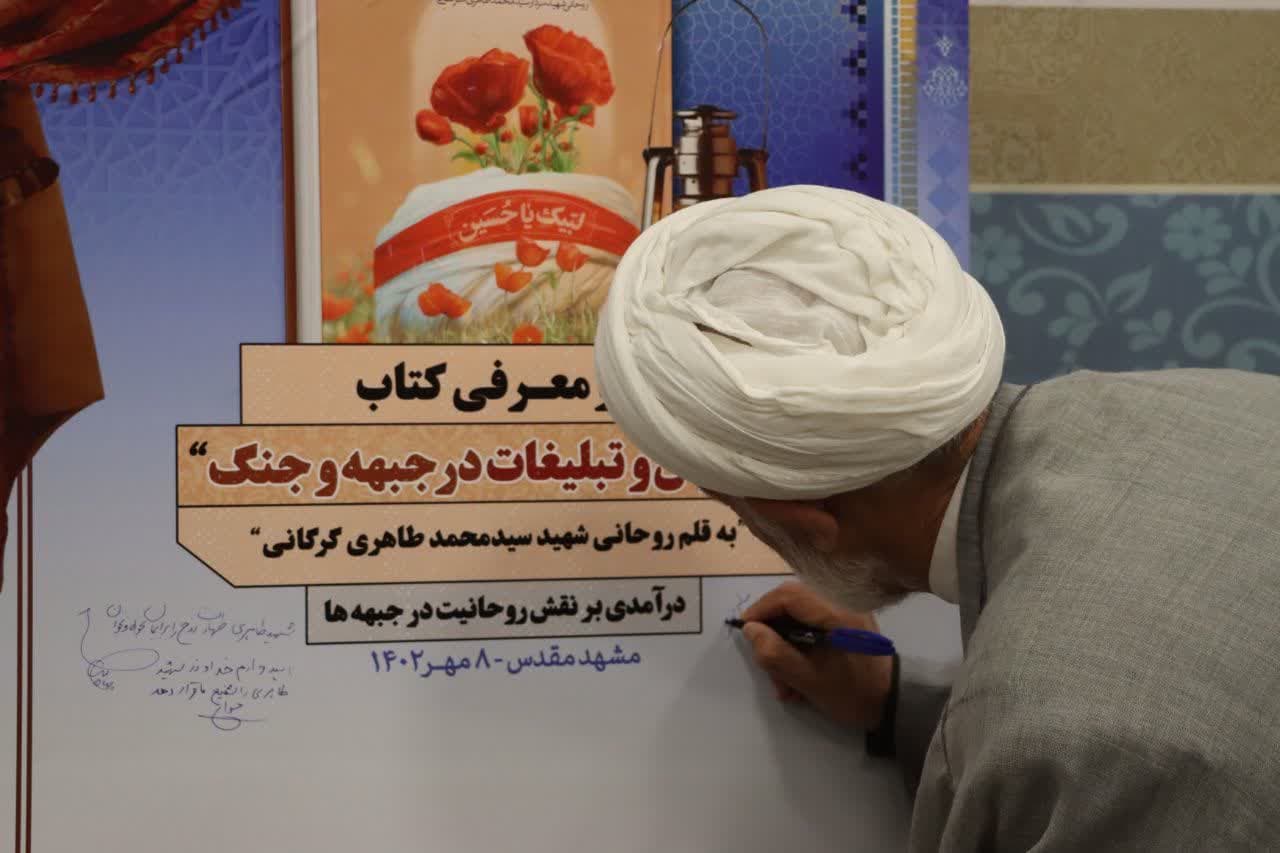 لبیک یا حُسَین
معرفی کتاب
و تبلیغات در جبهه و جنگ“
"به قلم روحانی شهید سیدمحمد طاهری گرگانی“
درآمدی بر نقش روحانیت در جبهه ها
مشهد مقدس - ۸ مهر ۱۴۰۲
امیدوارم خداوند شهید
طاهری را شفیع ما قرار دهد